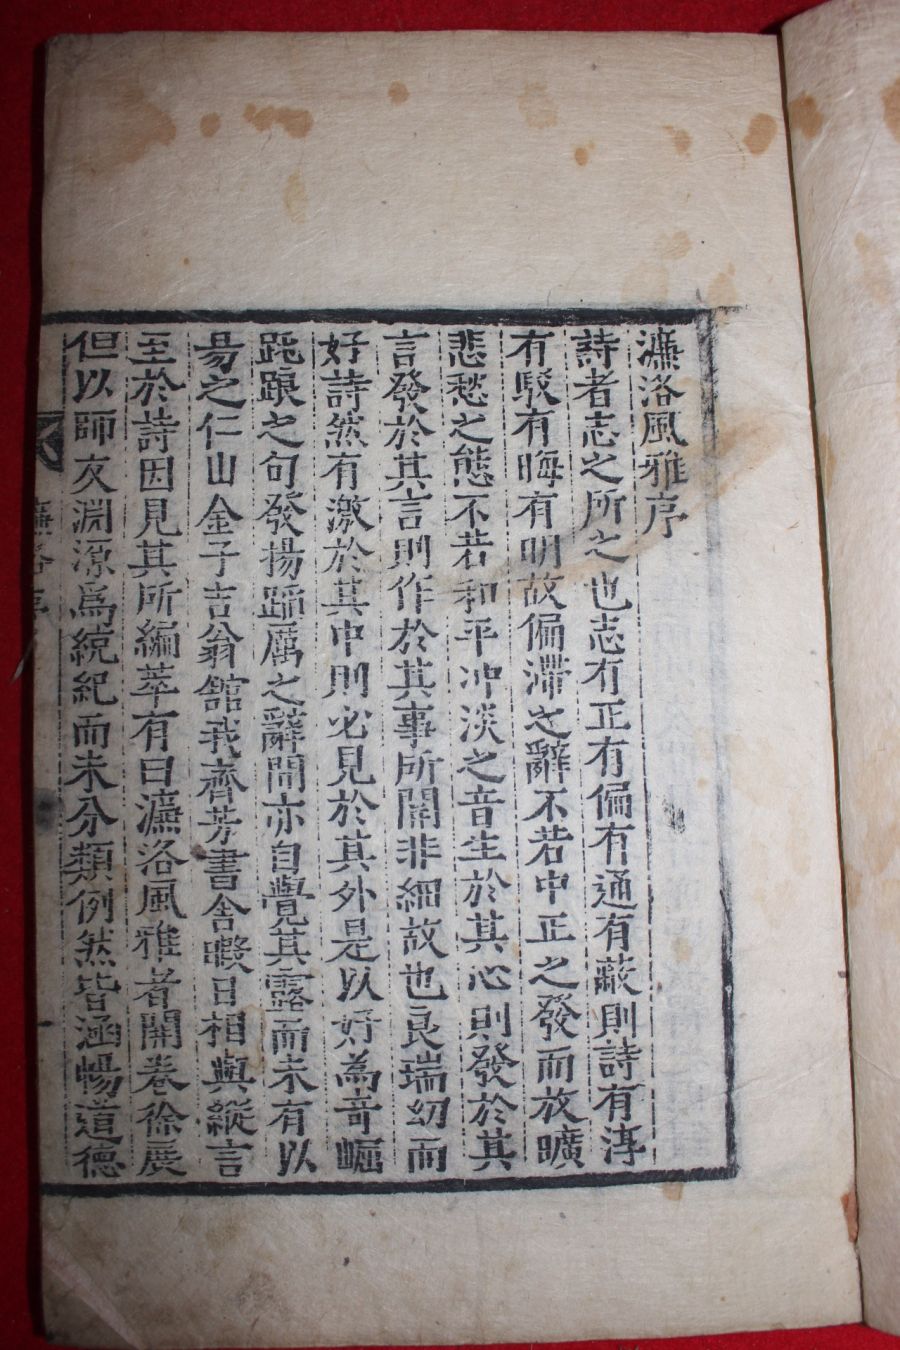 濂洛風雅序
詩者志之所之也志有正有偏有通有蔽則詩有淳
有駁有晦有明故偏滯之辭不若中正之發而放曠
悲愁之態不若和平沖淡之音生於其心則發於其
言發於其言則作於其事所關非細故也良瑞幼而
好詩然有激於其中則必見於其外是以好為奇崛
跎踉之句發揚蹈厲之辭間亦自覺其露而未有以
昜之仁山金子吉翁舘我齊芳書舍暇日相與縱言
至於詩因見其所編萃有曰濂洛風雅者開卷徐展
但以師友淵源爲統紀而未分類例然皆涵暢道德